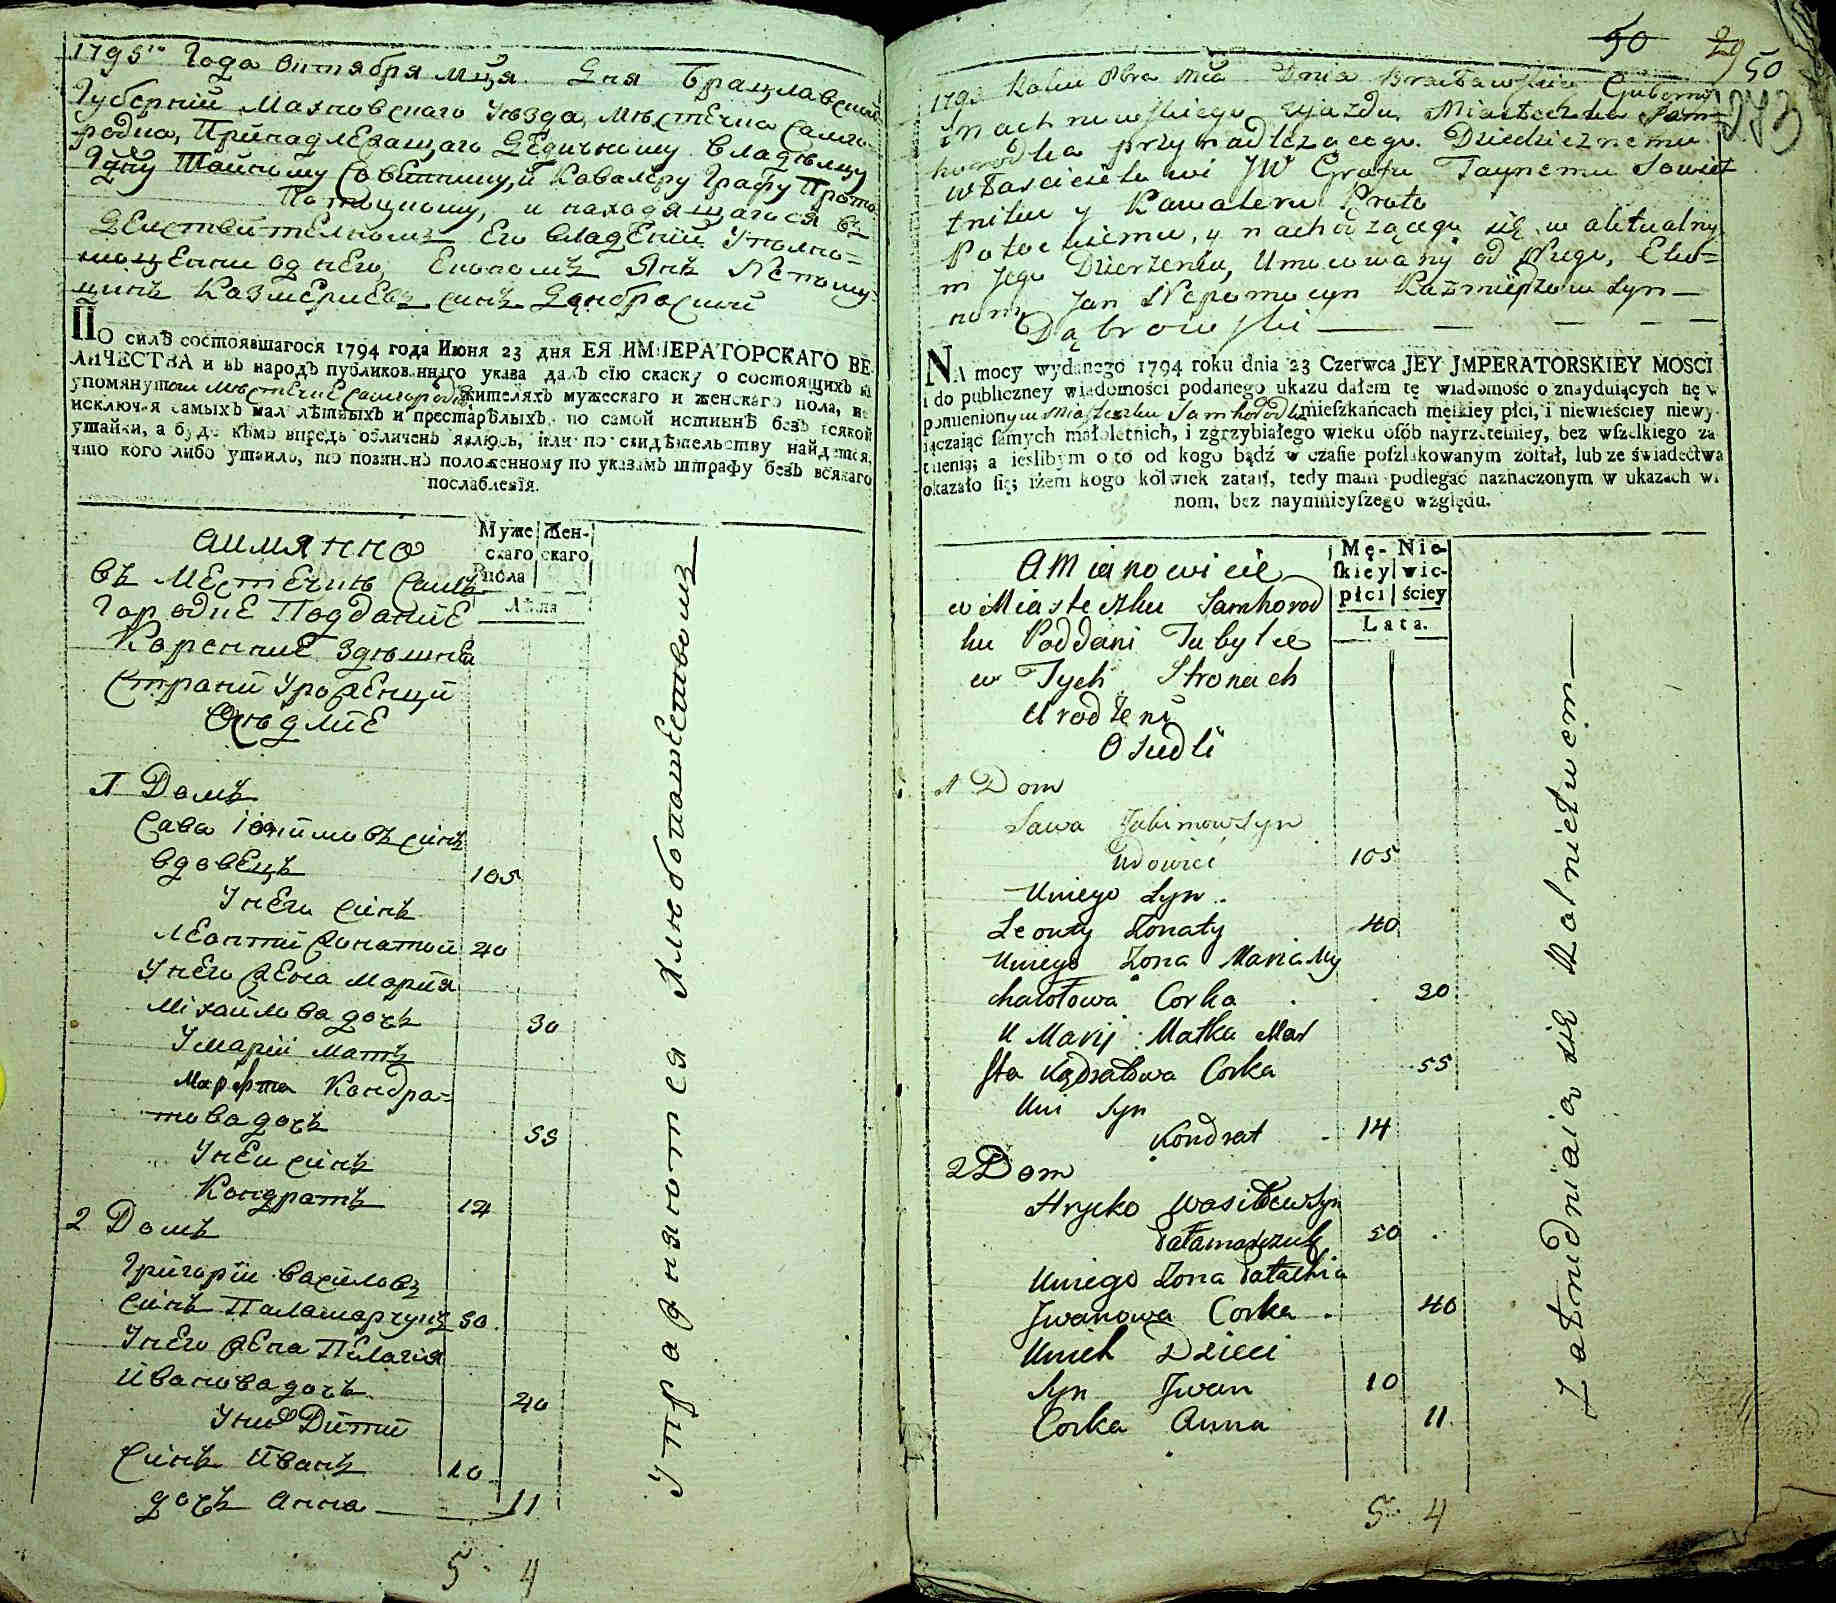 1795го Года Октября мця Дня Брацлавской
Губерніи Махновскаго Уезда, Мѣстечка Самго-
родка, Принадлежащаго Дедичному Владѣлцу
Гдну Тайному Советнику, и Кавалеру Графу Прото
Потоцкому, и находящагося въ
Действителномъ Его владеніи Уполно=
моценни од него, Економъ Янъ Непому-
цинъ Казмериевъ синъ Домбровскій
ПО силѣ состоявшагося 1794 года Июня 23 дня ЕЯ ИМПЕРАТОРСКАГО ВЕ-
ЛИЧЕСТВА и въ народъ публикованнаго указа далъ сїю скаску о состоящихъ въ
упомянутом Мѣстечке Самгородке жителяхъ мужескаго и женскаго пола, не
исключая самыхъ малолѣтныхъ и престарѣлыхъ, по самой истиннѣ безъ всякой
утайки, а буде кѣмъ впредь обличенъ явлюсь, или по свидѣтельству найдется,
что кого либо утаилъ, то повиненъ положенному по указамъ штрафу безъ всякаго
послабленїя.
Муже- Жен-
скаго скаго
пола
Лѣта
аимянно
въ Местечкѣ Самъ
Городке Поддание
Коренние здешней
Страни Уроженци
Оседлие
1 Домъ
Сава Іокимовъ синъ
вдовецъ 105
У него синъ
Леонтий Жонатой 40
У него Жена Мария
Міхайлова дочъ 30
У Марїи Матъ
Марфта Кондра=
това дочъ 55
У неи синъ
Кондратъ 14
2 Домъ
Григорїи Василовъ
синъ Паламарчукъ 50
У него Жена Пелагія
Иванова дочъ 40
У них Дити
Синъ Иванъ 10
дочъ Анна 11
5 4
Упражняются Хлѣбопашествомъ
50 29 50
273
1795 Roku 8bra Mca Dnia Bracławskiey Gubernij
Machnowskiego Ujazdu Miasteczka Sam-
horodka przynadleżącego Dziedzicznemu
właścicielowi JW Grafu Taynemu Sowiet
tniku y Kawaleru Proto
Potockiemu, y nachodzącego się w aktualny
m Jego Dzierżeniu, Umocowany od Niego, Eko=
nom Jan Nepomucyn Kazmierzow syn
Dąbrowski
NA mocy wydanego 1794 roku dnia 23 Czerwca JEY JMPERATORSKIEY MOSCI
i do publiczney wiadomości podanego ukazu dałem tę wiadomość o znayduiących się w
pomienionym Miasteczku Samhorodku mieſzkańcach męſkiey płci, i niewieściey niewy-
iączaiąc ſamych małoletnich, i zgrzybiałego wieku oſób nayrzetelniey, bez wſzelkiego za-
taienia; a ieślibym o to od kogo bądź w czaſie poſzlakowanym zoſtał, lub ze świadectwa
okazało ſię; iżem kogo kolwiek zataił, tedy mam podlegać naznaczonym w ukazach wi-
nom, bez naymnieyſzego względu.
Mę- Nie-
ſkiey wie-
płci ściey
Lata.
A Mianowicie
w Miasteczku Samhorod
ku Poddani Tubylce
w Tych Stronach
Urodzeni
Osiedli
1 Dom
Sawa Jakimow Syn
Udowiec 105
U niego Syn
Leonty Żonaty 40
U niego Żona Maria My
chałowa Corka 30
U Marij Matka Mar
fta Kądratowa Corka 55
U ni Syn
Kondrat 14
2 Dom
Hrycko Wasilew Syn
Pałamarczuk 50
U niego Żona Pałachia
Jwanowa Corka 40
U nich Dzieci
Syn Jwan 10
Corka Anna 11
5 4
Zatrudniaią się Rolnictwem